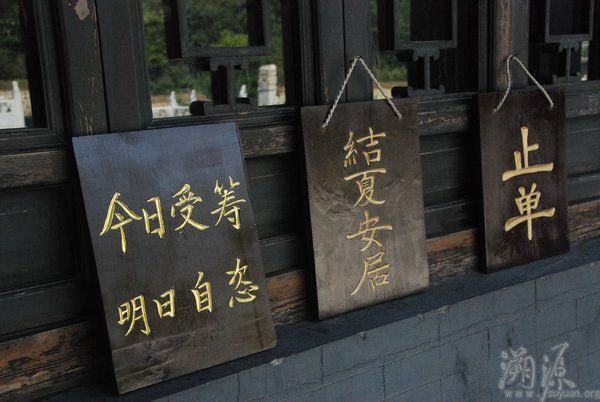 今日受筹
明日自恣
结夏安居
止单
溯源
www.suyuan.org